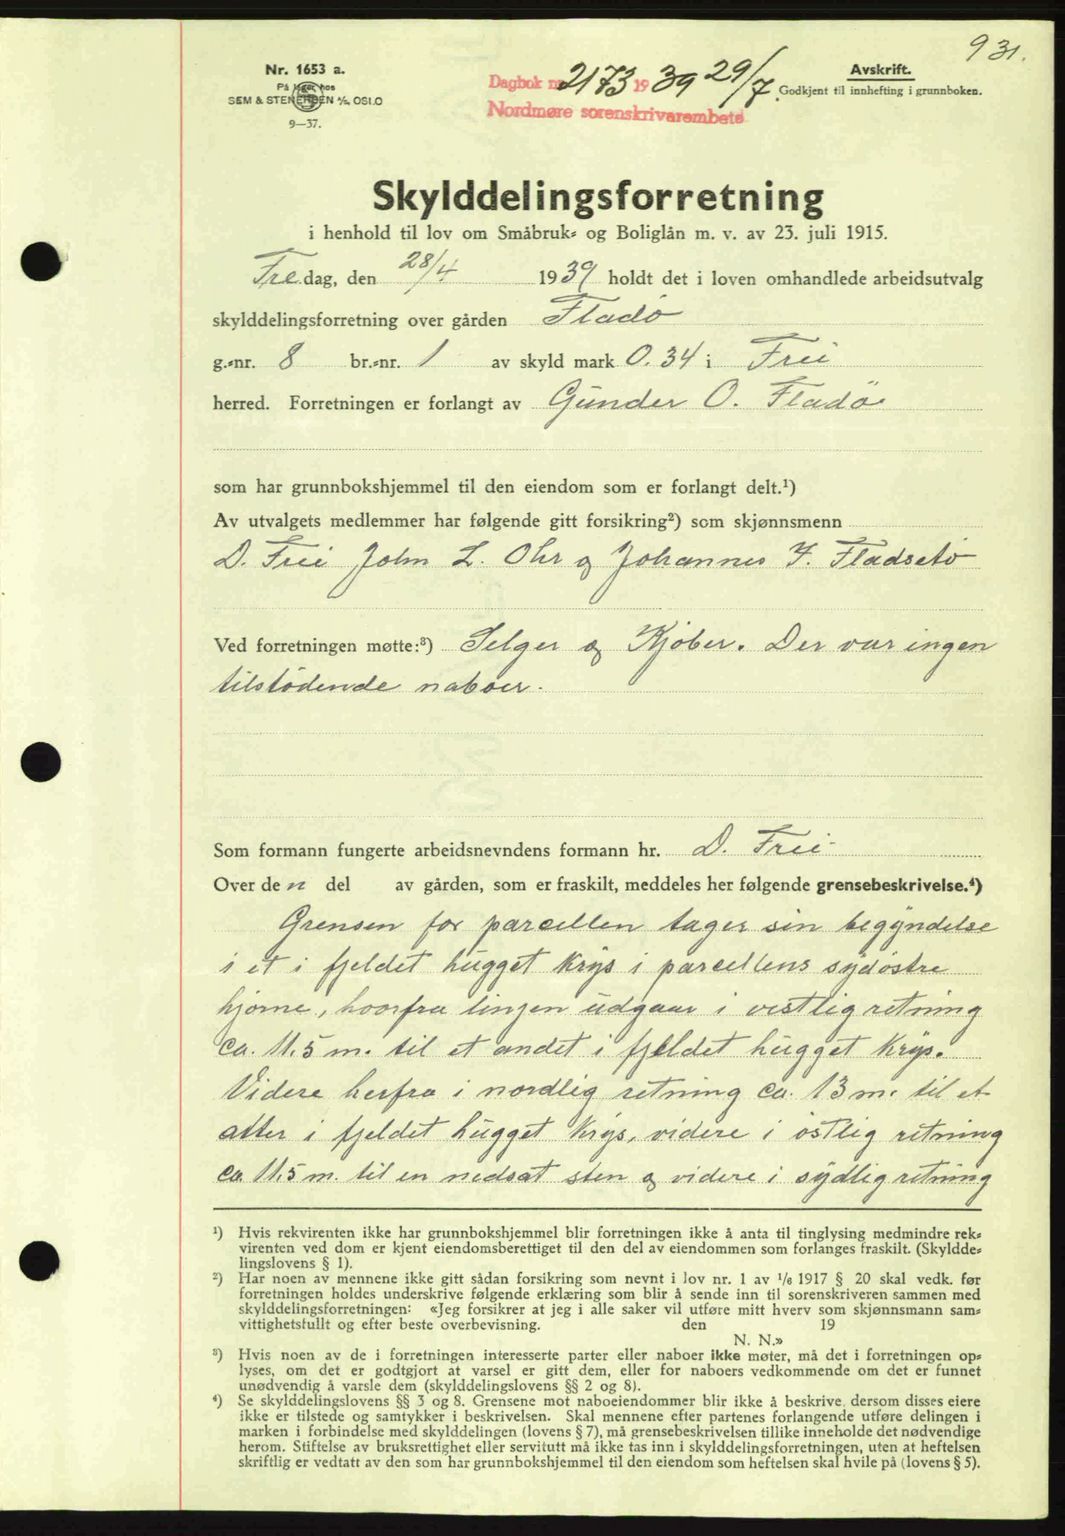 931.
Nr. 1653 a.
På lager hos
SEM & STENERSEN A/S, OSLO
9—37.
Dagbok nr. 2173 1939 29/7.
Nordmøre sorenskrivarembete
Avskrift.
Godkjent til innhefting i grunnboken.
Skylddelingsforretning
i henhold til lov om Småbruk- og Boliglån m. v. av 23. juli 1915.
Fredag, den 28/4 1939 holdt det i loven omhandlede arbeidsutvalg
skylddelingsforretning over gården Fladø
g.-nr. 8 br.-nr. 1 av skyld mark 0.34 i Frei
herred. Forretningen er forlangt av Gunder O. Fladö
som har grunnbokshjemmel til den eiendom som er forlangt delt.¹)
Av utvalgets medlemmer har følgende gitt forsikring²) som skjønnsmenn
D. Frei John L. Ohr og Johannes F. Fladsetø
Ved forretningen møtte:³) Selger og Kjöber. Der var ingen
tilstödende naboer.
Som formann fungerte arbeidsnevndens formann hr. D. Frei
Over den del av gården, som er fraskilt, meddeles her følgende grensebeskrivelse.⁴)
Grensen for parcellen tager sin begyndelse
i et i fjeldet hugget Krys i parcellens sydöstre
hjørne, hvorfra linjen udgaar i vestlig retning
Ca. 11.5 m. til et andet i fjeldet hugget Kryss.
Videre herfra i nordlig retning ca. 13 m. til et
atter i fjeldet hugget Krys, videre i östlig retning
ca. 11.5 m. til en nedsat sten og videre i sydlig retning
¹) Hvis rekvirenten ikke har grunnbokshjemmel blir forretningen ikke å anta til tinglysing medmindre rek-
virenten ved dom er kjent eiendomsberettiget til den del av eiendommen som forlanges fraskilt. (Skyldde-
lingslovens § 1).
²) Har noen av mennene ikke gitt sådan forsikring som nevnt i lov nr. 1 av 1/6 1917 § 20 skal vedk. før
forretningen holdes underskrive følgende erklæring som blir å sende inn til sorenskriveren sammen med
skylddelingsforretningen: «Jeg forsikrer at jeg i alle saker vil utføre mitt hverv som skjønnsmann sam-
vittighetsfullt og efter beste overbevisning. den 19
N. N.»
³) Hvis noen av de i forretningen interesserte parter eller naboer ikke møter, må det i forretningen op-
lyses, om det er godtgjort at varsel er gitt dem, eller for naboers vedkommende om det er funnet
unødvendig å varsle dem (skylddelingslovens §§ 2 og 8).
⁴) Se skylddelingslovens §§ 3 og 8. Grensene mot naboeiendommer blir ikke å beskrive, dersom disses eiere
ikke er tilstede og samtykker i beskrivelsen. Skal mennene efter partenes forlangende utføre delingen i
marken i forbindelse med skylddelingen (lovens § 7), må grensebeskrivelsen tillike inneholde det nødvendige
herom. Stiftelse av bruksrettighet eller servitutt må ikke tas inn i skylddelingsforretningen, uten at heftelsen
skriftlig er vedtatt av den som har grunnbokshjemmel til den eiendom som heftelsen skal hvile på (lovens § 5).